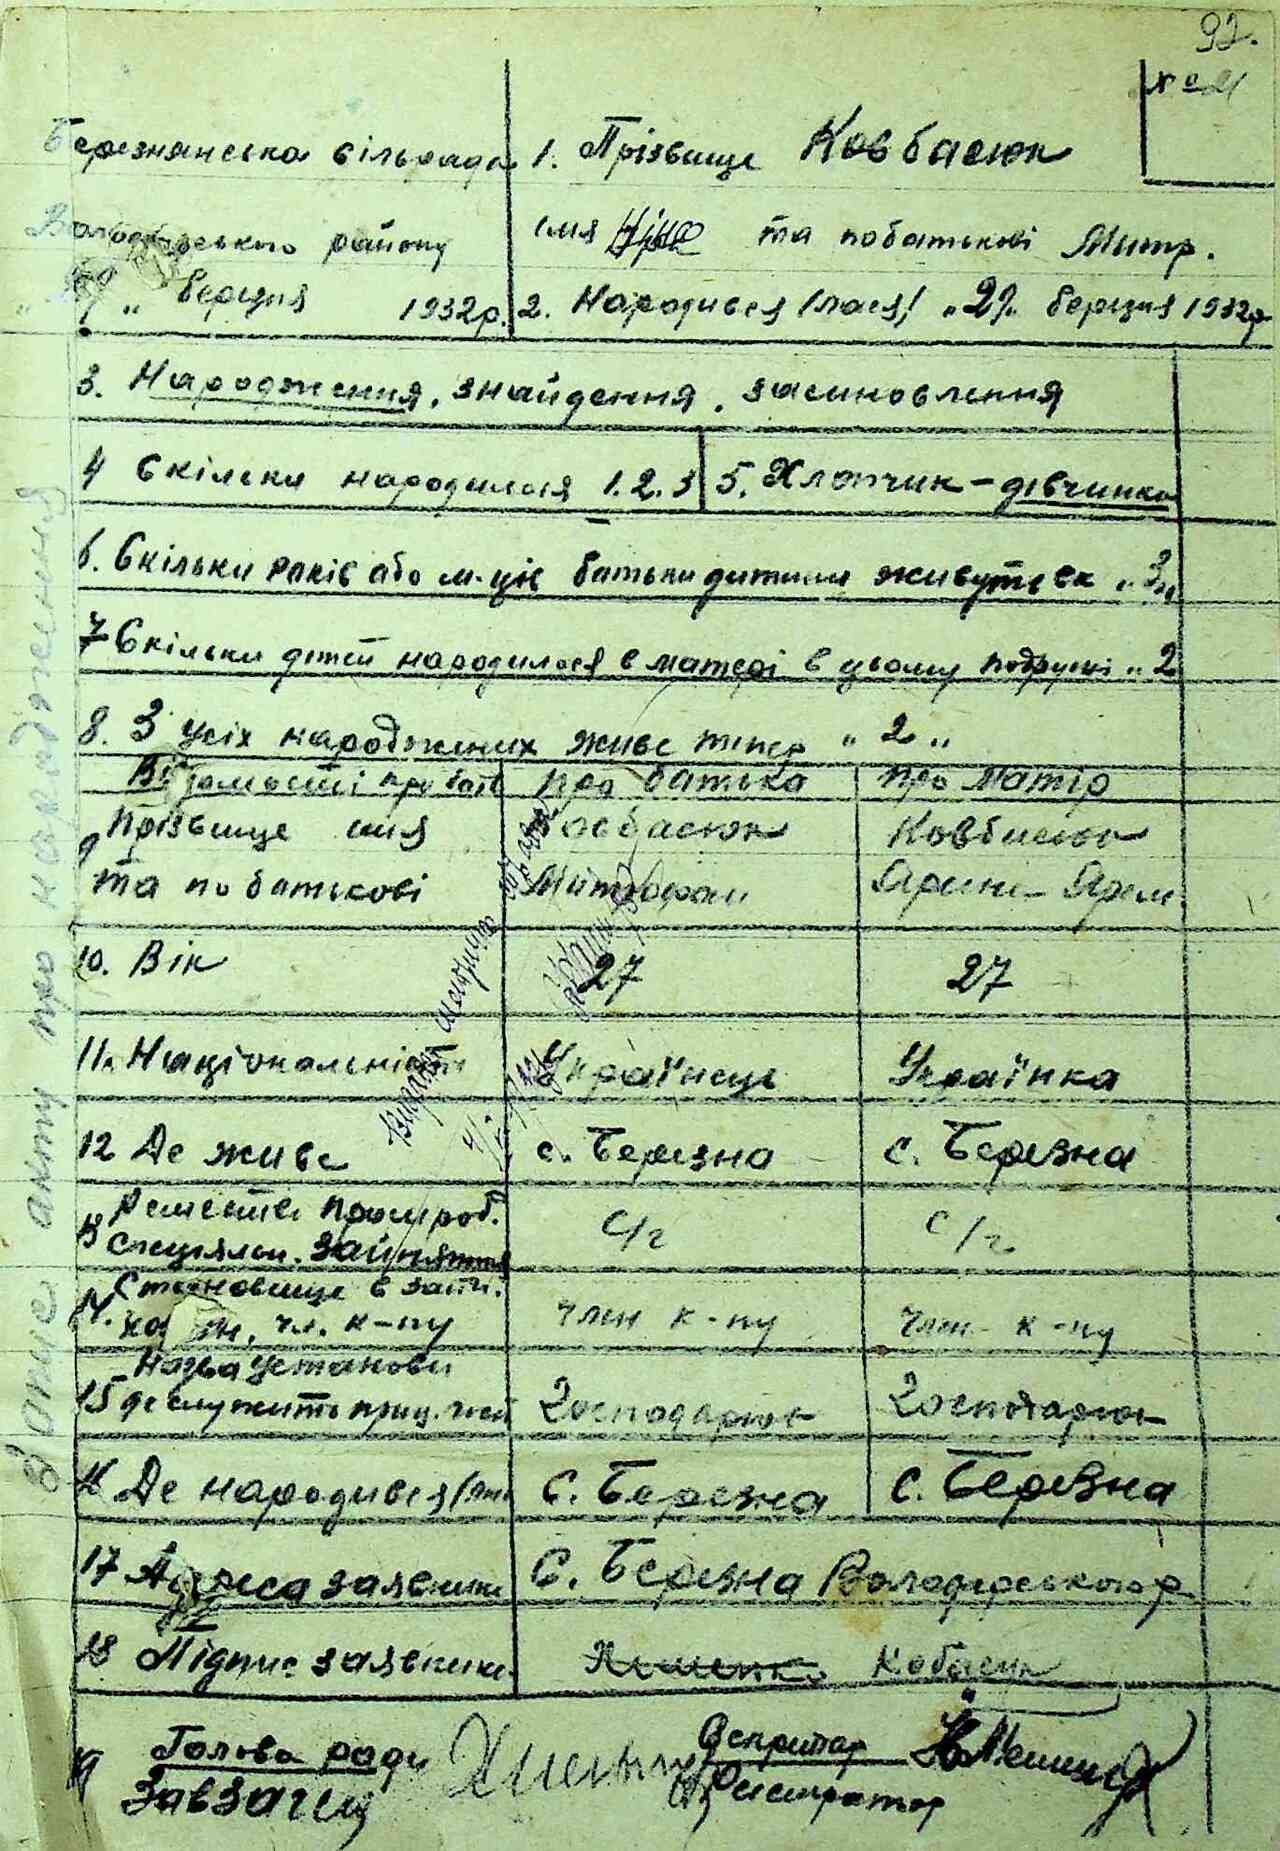 92.
№ 21
Березнянська сільрада
Володарського району
березня 1932р.
1. Прізвище Ковбасюк
імя Ніна та побатькові Митр.
2. Народився /лася/ „29„ березня 1932р
3. Народження, знайдення, засиновлення
4 Скільки народилося 1. 2. 3
5. Хлопчик - дівчинка
6. Скільки років або м-ців батьки дитини живуть вк „3„
7 Скільки дітей народилося в матері в цьому подружі „2
8. З усіх народжених живе тепер „2„
Відомості про батьків про батька про матір
9 Прізвище імя Ковбасюк Ковбасюк
та по батькові Митрофан Ярина Ярем.
10. Вік 27 27
11. Національність Українець Українка
12 Де живе с. Березна с. Березна
13 Ремество, пром, роб.
спеціяльн. заняття с/г с/г
14. Становище в занн.
хазяїн, чл. к-пу член к-пу член к-пу
15 Назва установи
де служить прац. Господарство Господарство
16 Де народився/лась С. Березна с. Березна
17 Адреса заявника С. Березна Володарського р.
18 Підпис заявника Кобасюк
19 Голова ради Секретар
Завзагсу Реєстратор
Запис акту про народження